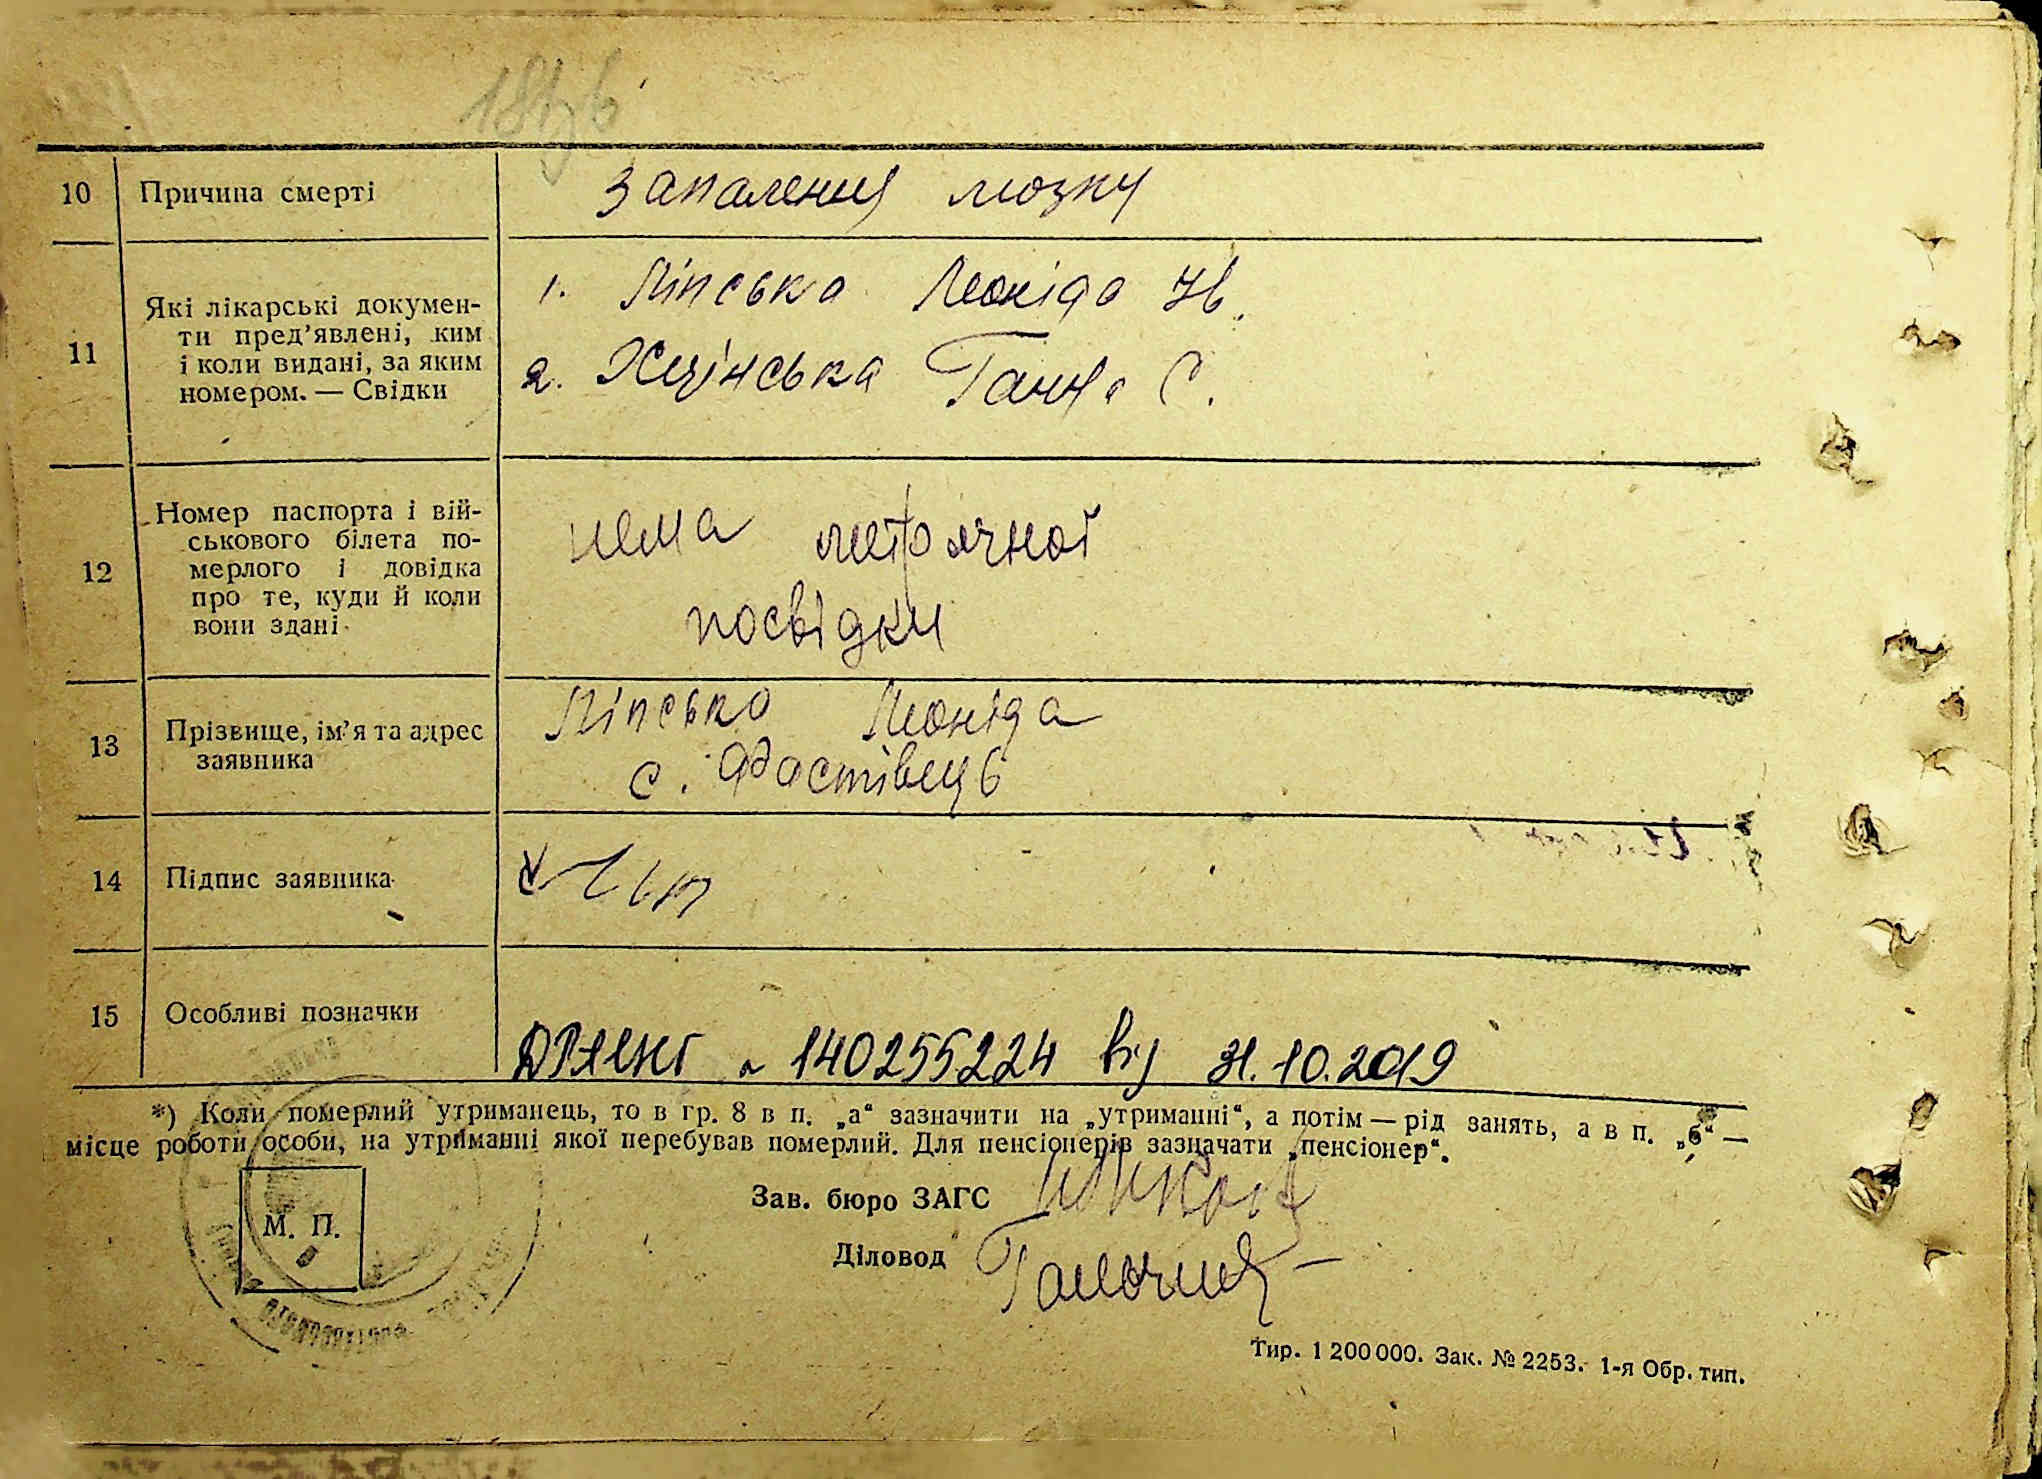 10 Причина смерті Запалення мозку
11 Які лікарські докумен-
ти пред’явлені, ким
і коли видані, за яким
номером. — Свідки
1. Ліпська Леоніда Ів.
2. Ганна С.
12 Номер паспорта і вій-
ськового білета по-
мерлого і довідка
про те, куди й коли
вони здані
нема метричної
посвідки
13 Прізвище, ім’я та адрес
заявника
Ліпська Леоніда
с. Фастівець
14 Підпис заявника
15 Особливі позначки
140255224 від 31.10.2019
*) Коли померлий утриманець, то в гр. 8 в п. „а“ зазначити на „утриманні“, а потім — рід занять, а в п. „б“ —
місце роботи особи, на утриманні якої перебував померлий. Для пенсіонерів зазначати „пенсіонер“.
М. П.
Зав. бюро ЗАГС
Діловод
Тир. 1 200 000. Зак. № 2253. 1-я Обр. тип.